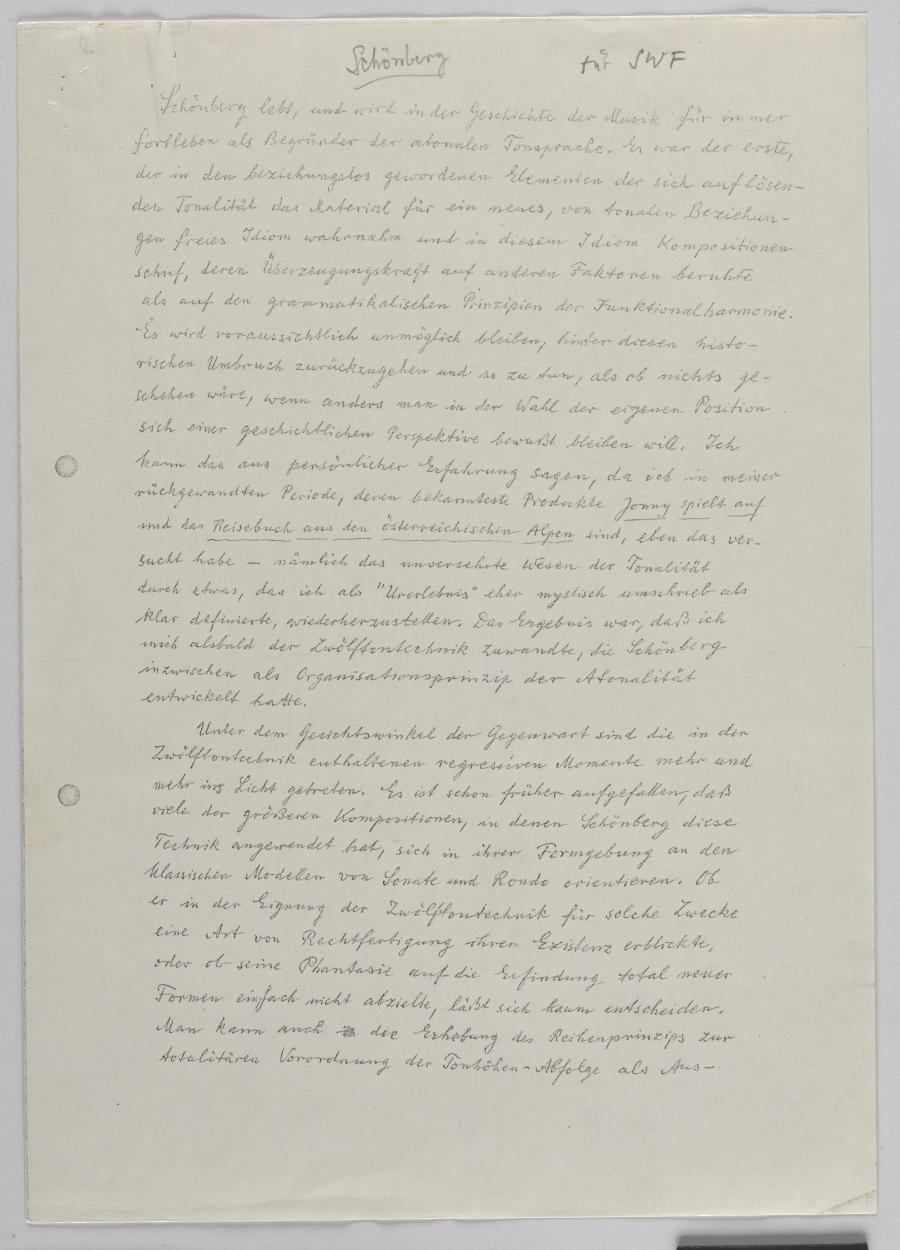 Schönberg für SWF
Schönberg lebt, und wird in der Geschichte der Musik für immer
fortleben als Begründer der atonalen Tonsprache. Er war der erste,
der in den beziehungslos gewordenen Elementen der sich auflösen-
den Tonalität das Material für ein neues, von tonalen Beziehun-
gen freies Idiom wahrnahm und in diesem Idiom Kompositionen
schuf, deren Überzeugungskraft auf anderen Faktoren beruhte
als auf den grammatikalischen Prinzipien der Funktionalharmonie.
Es wird voraussichtlich unmöglich bleiben, hinter diesen histo-
rischen Umbruch zurückzugehen und so zu tun, als ob nichts ge-
schehen wäre, wenn anders man in der Wahl der eigenen Position
sich einer geschichtlichen Perspektive bewußt bleiben will. Ich
kann das aus persönlicher Erfahrung sagen, da ich in meiner
rückgewandten Periode, deren bekannteste Produkte Jonny spielt auf
und das Reisebuch aus den österreichischen Alpen sind, eben das ver-
sucht habe – nämlich das unversehrte Wesen der Tonalität
durch etwas, das ich als "Urerlebnis" eher mystisch umschrieb als
klar definierte, wiederherzustellen. Das Ergebnis war, daß ich
mich alsbald der Zwölftontechnik zuwandte, die Schönberg
inzwischen als Organisationsprinzip der Atonalität
entwickelt hatte.
Unter dem Gesichtswinkel der Gegenwart sind die in der
Zwölftontechnik enthaltenen regressiven Momente mehr und
mehr ins Licht getreten. Es ist schon früher aufgefallen, daß
viele der größeren Kompositionen, in denen Schönberg diese
Technik angewendet hat, sich in ihrer Formgebung an den
klassischen Modellen von Sonate und Rondo orientieren. Ob
er in der Eignung der Zwölftontechnik für solche Zwecke
eine Art von Rechtfertigung ihrer Existenz erblickte,
oder ob seine Phantasie auf die Erfindung total neuer
Formen einfach nicht abzielte, läßt sich kaum entscheiden.
Man kann auch die Erhebung des Reihenprinzips zur
totalitären Vorordnung der Tonhöhen-Abfolge als Aus-